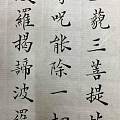 三藐三菩提
呪能除一切
羅揭諦波羅